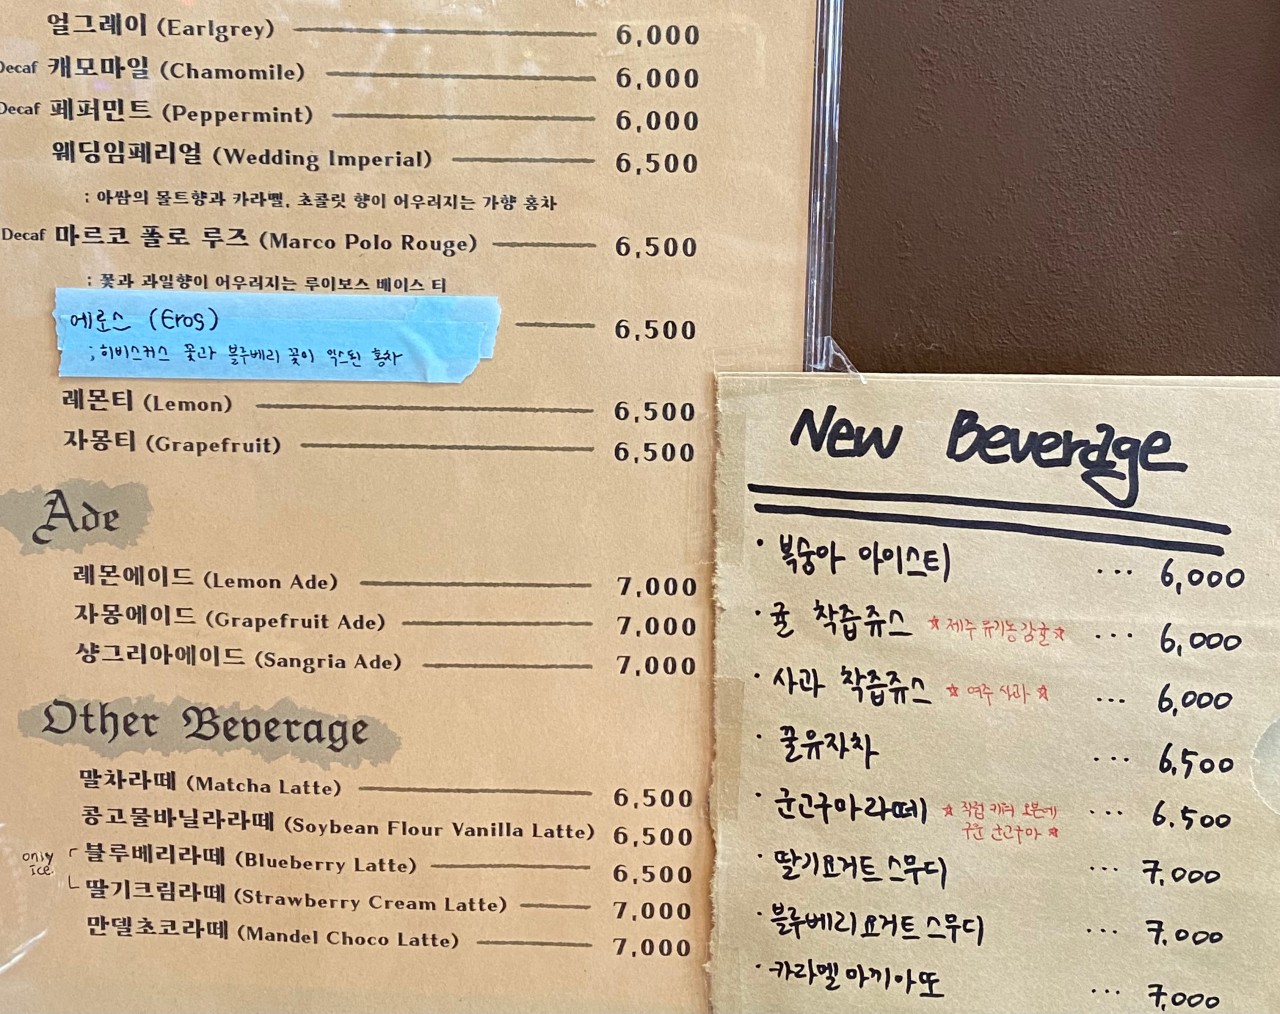 얼그레이 (Earlgrey) 6,000
Decaf 캐모마일 (Chamomile) 6,000
Decaf 페퍼민트 (Peppermint) 6,000
웨딩임페리얼 (Wedding Imperial) 6,500
; 아쌈의 몰트향과 카라멜, 초콜릿 향이 어우러지는 가향 홍차
Decaf 마르코 폴로 루즈 (Marco Polo Rouge) 6,500
; 꽃과 과일향이 어우러지는 루이보스 베이스 티
에로스 (Eros) 6,500
; 히비스커스 꽃과 블루베리 꽃이 믹스된 홍차
레몬티 (Lemon) 6,500
자몽티 (Grapefruit) 6,500
Ade
레몬에이드 (Lemon Ade) 7,000
자몽에이드 (Grapefruit Ade) 7,000
샹그리아에이드 (Sangria Ade) 7,000
Other Beverage
말차라떼 (Matcha Latte) 6,500
콩고물바닐라라떼 (Soybean Flour Vanilla Latte) 6,500
only ice.
블루베리라떼 (Blueberry Latte) 6,500
딸기크림라떼 (Strawberry Cream Latte) 7,000
만델초코라떼 (Mandel Choco Latte) 7,000
New Beverage
· 복숭아 아이스티 ... 6,000
· 귤 착즙쥬스 ☆제주 유기농감귤☆ ... 6,000
· 사과 착즙쥬스 ☆ 여주 사과 ☆ ... 6,000
· 꿀유자차 ... 6,500
· 군고구마라떼 ☆ 직접 캐서 오븐에 ... 6.500
구운 군고구마 ☆
· 딸기요거트 스무디 ... 7,000
· 블루베리요거트 스무디 ... 7.000
· 카라멜 마끼아또 ... 7,000